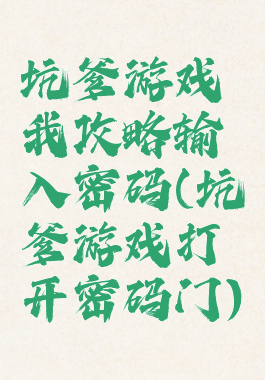 坑爹游戏
我攻略输
入密码(坑
爹游戏打
开密码门)